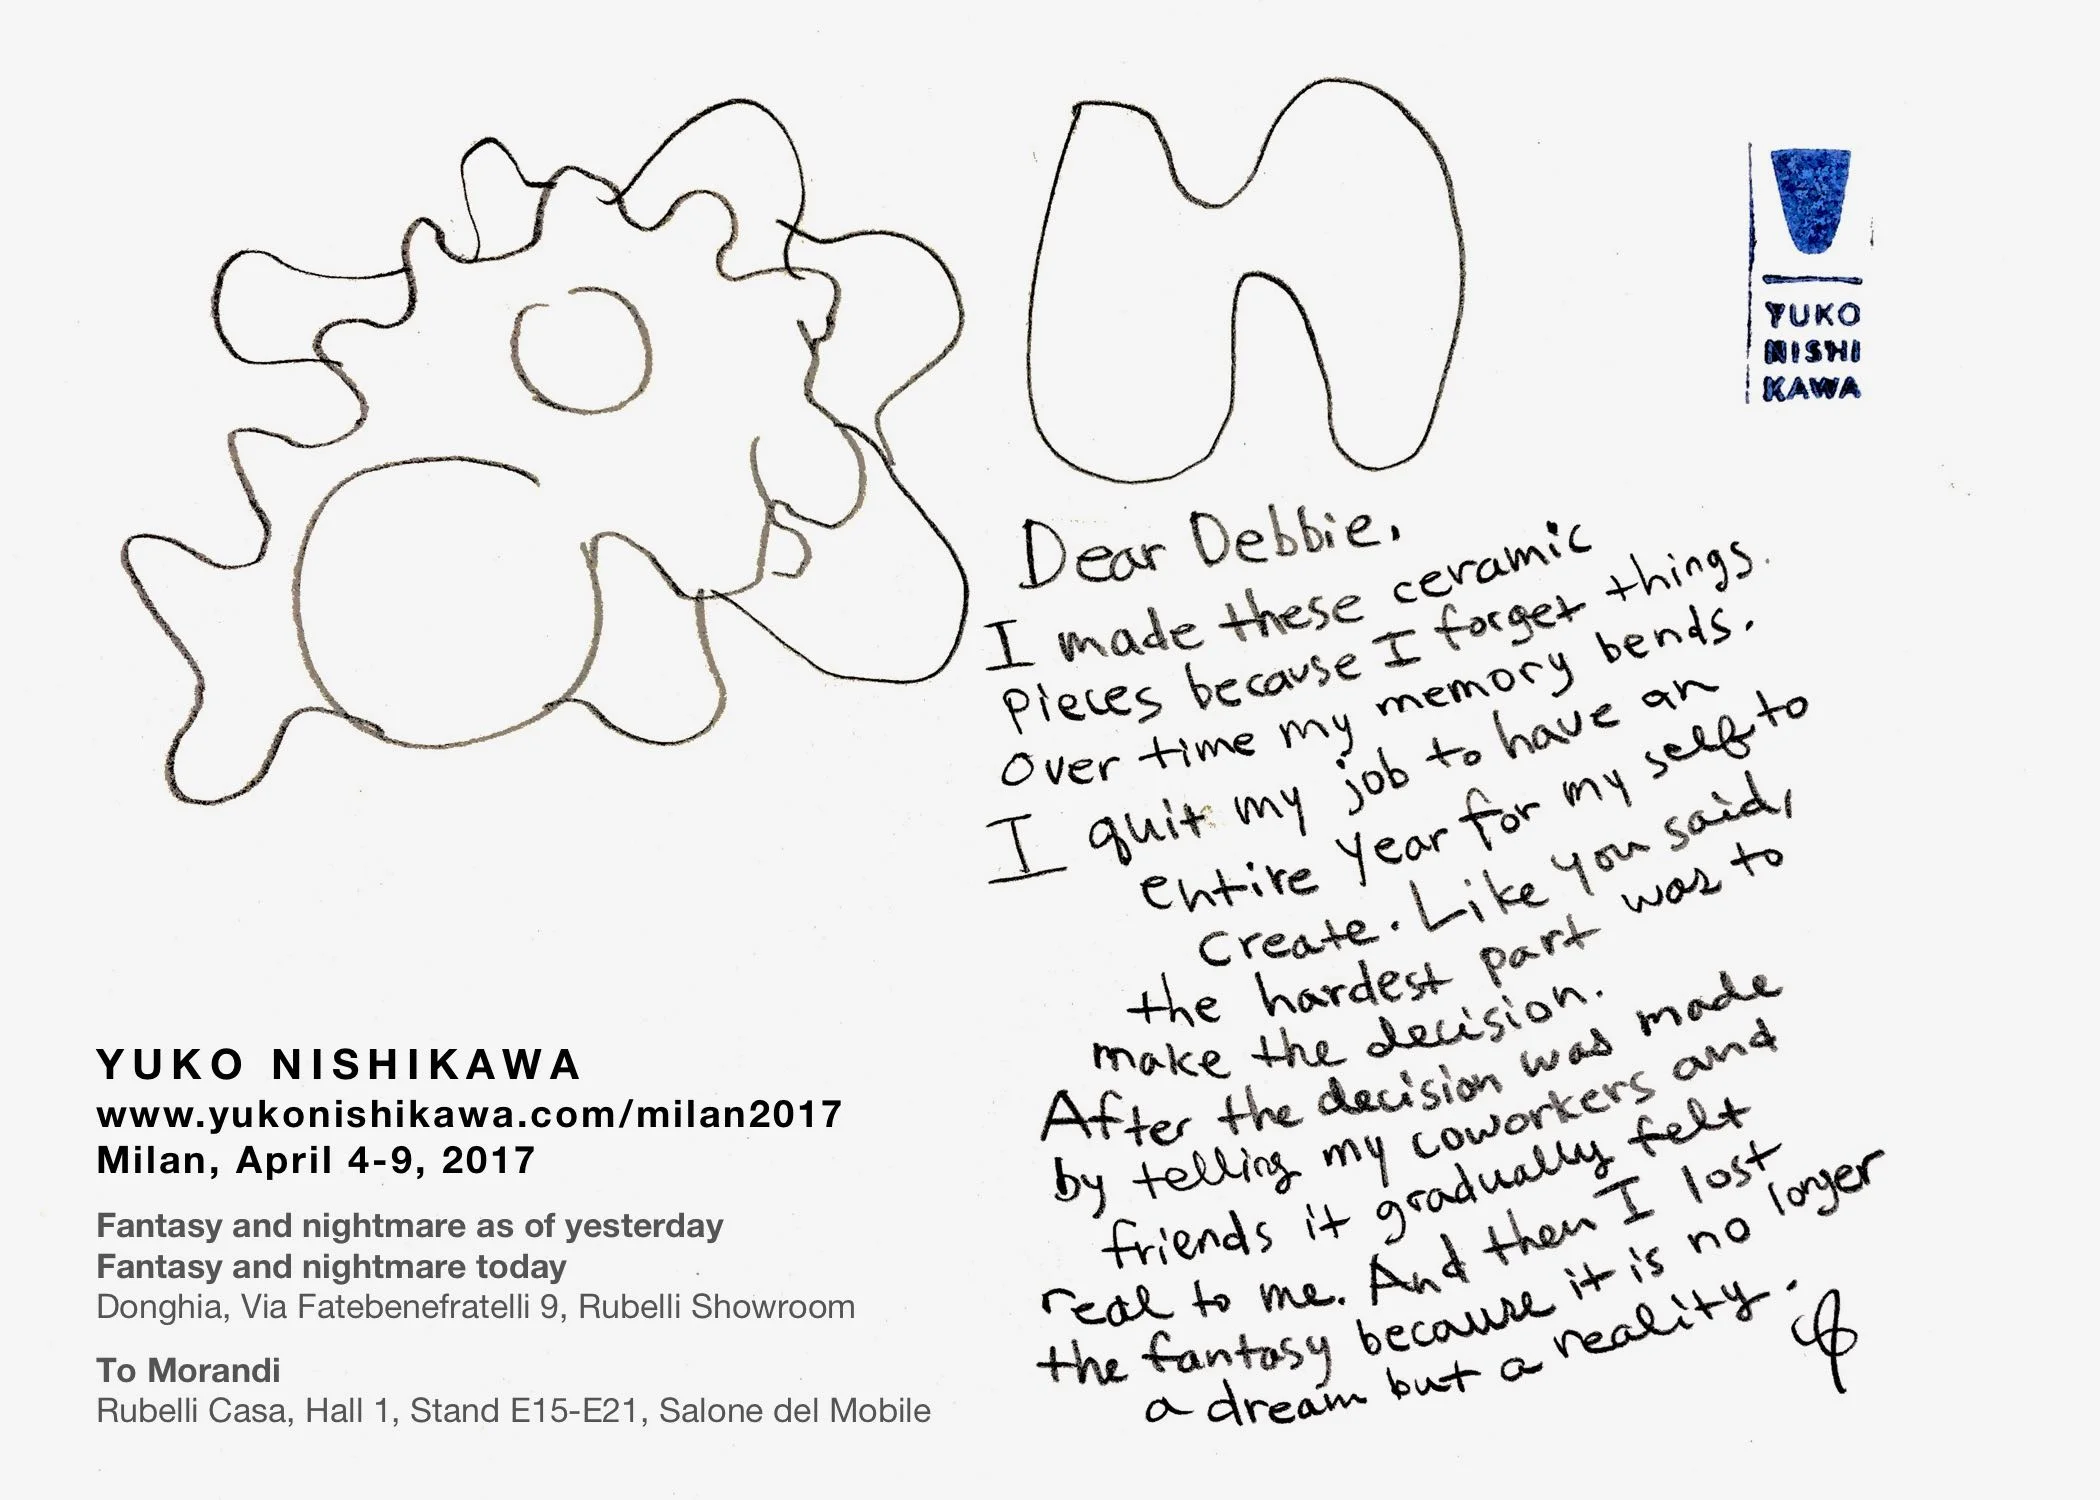 YUKO
NISHI
KAWA
Dear Debbie,
I made these ceramic
pieces because I forget things.
Over time my memory bends.
I quit my job to have an
entire year for my self to
create. Like you said,
the hardest part was to
make the decision.
After the decision was made
by telling my coworkers and
friends it gradually felt
real to me. And then I lost
the fantasy because it is no longer
a dream but a reality.
YUKO NISHIKAWA
www.yukonishikawa.com/milan2017
Milan, April 4-9, 2017
Fantasy and nightmare as of yesterday
Fantasy and nightmare today
Donghia, Via Fatebenefratelli 9, Rubelli Showroom
To Morandi
Rubelli Casa, Hall 1, Stand E15-E21, Salone del Mobile